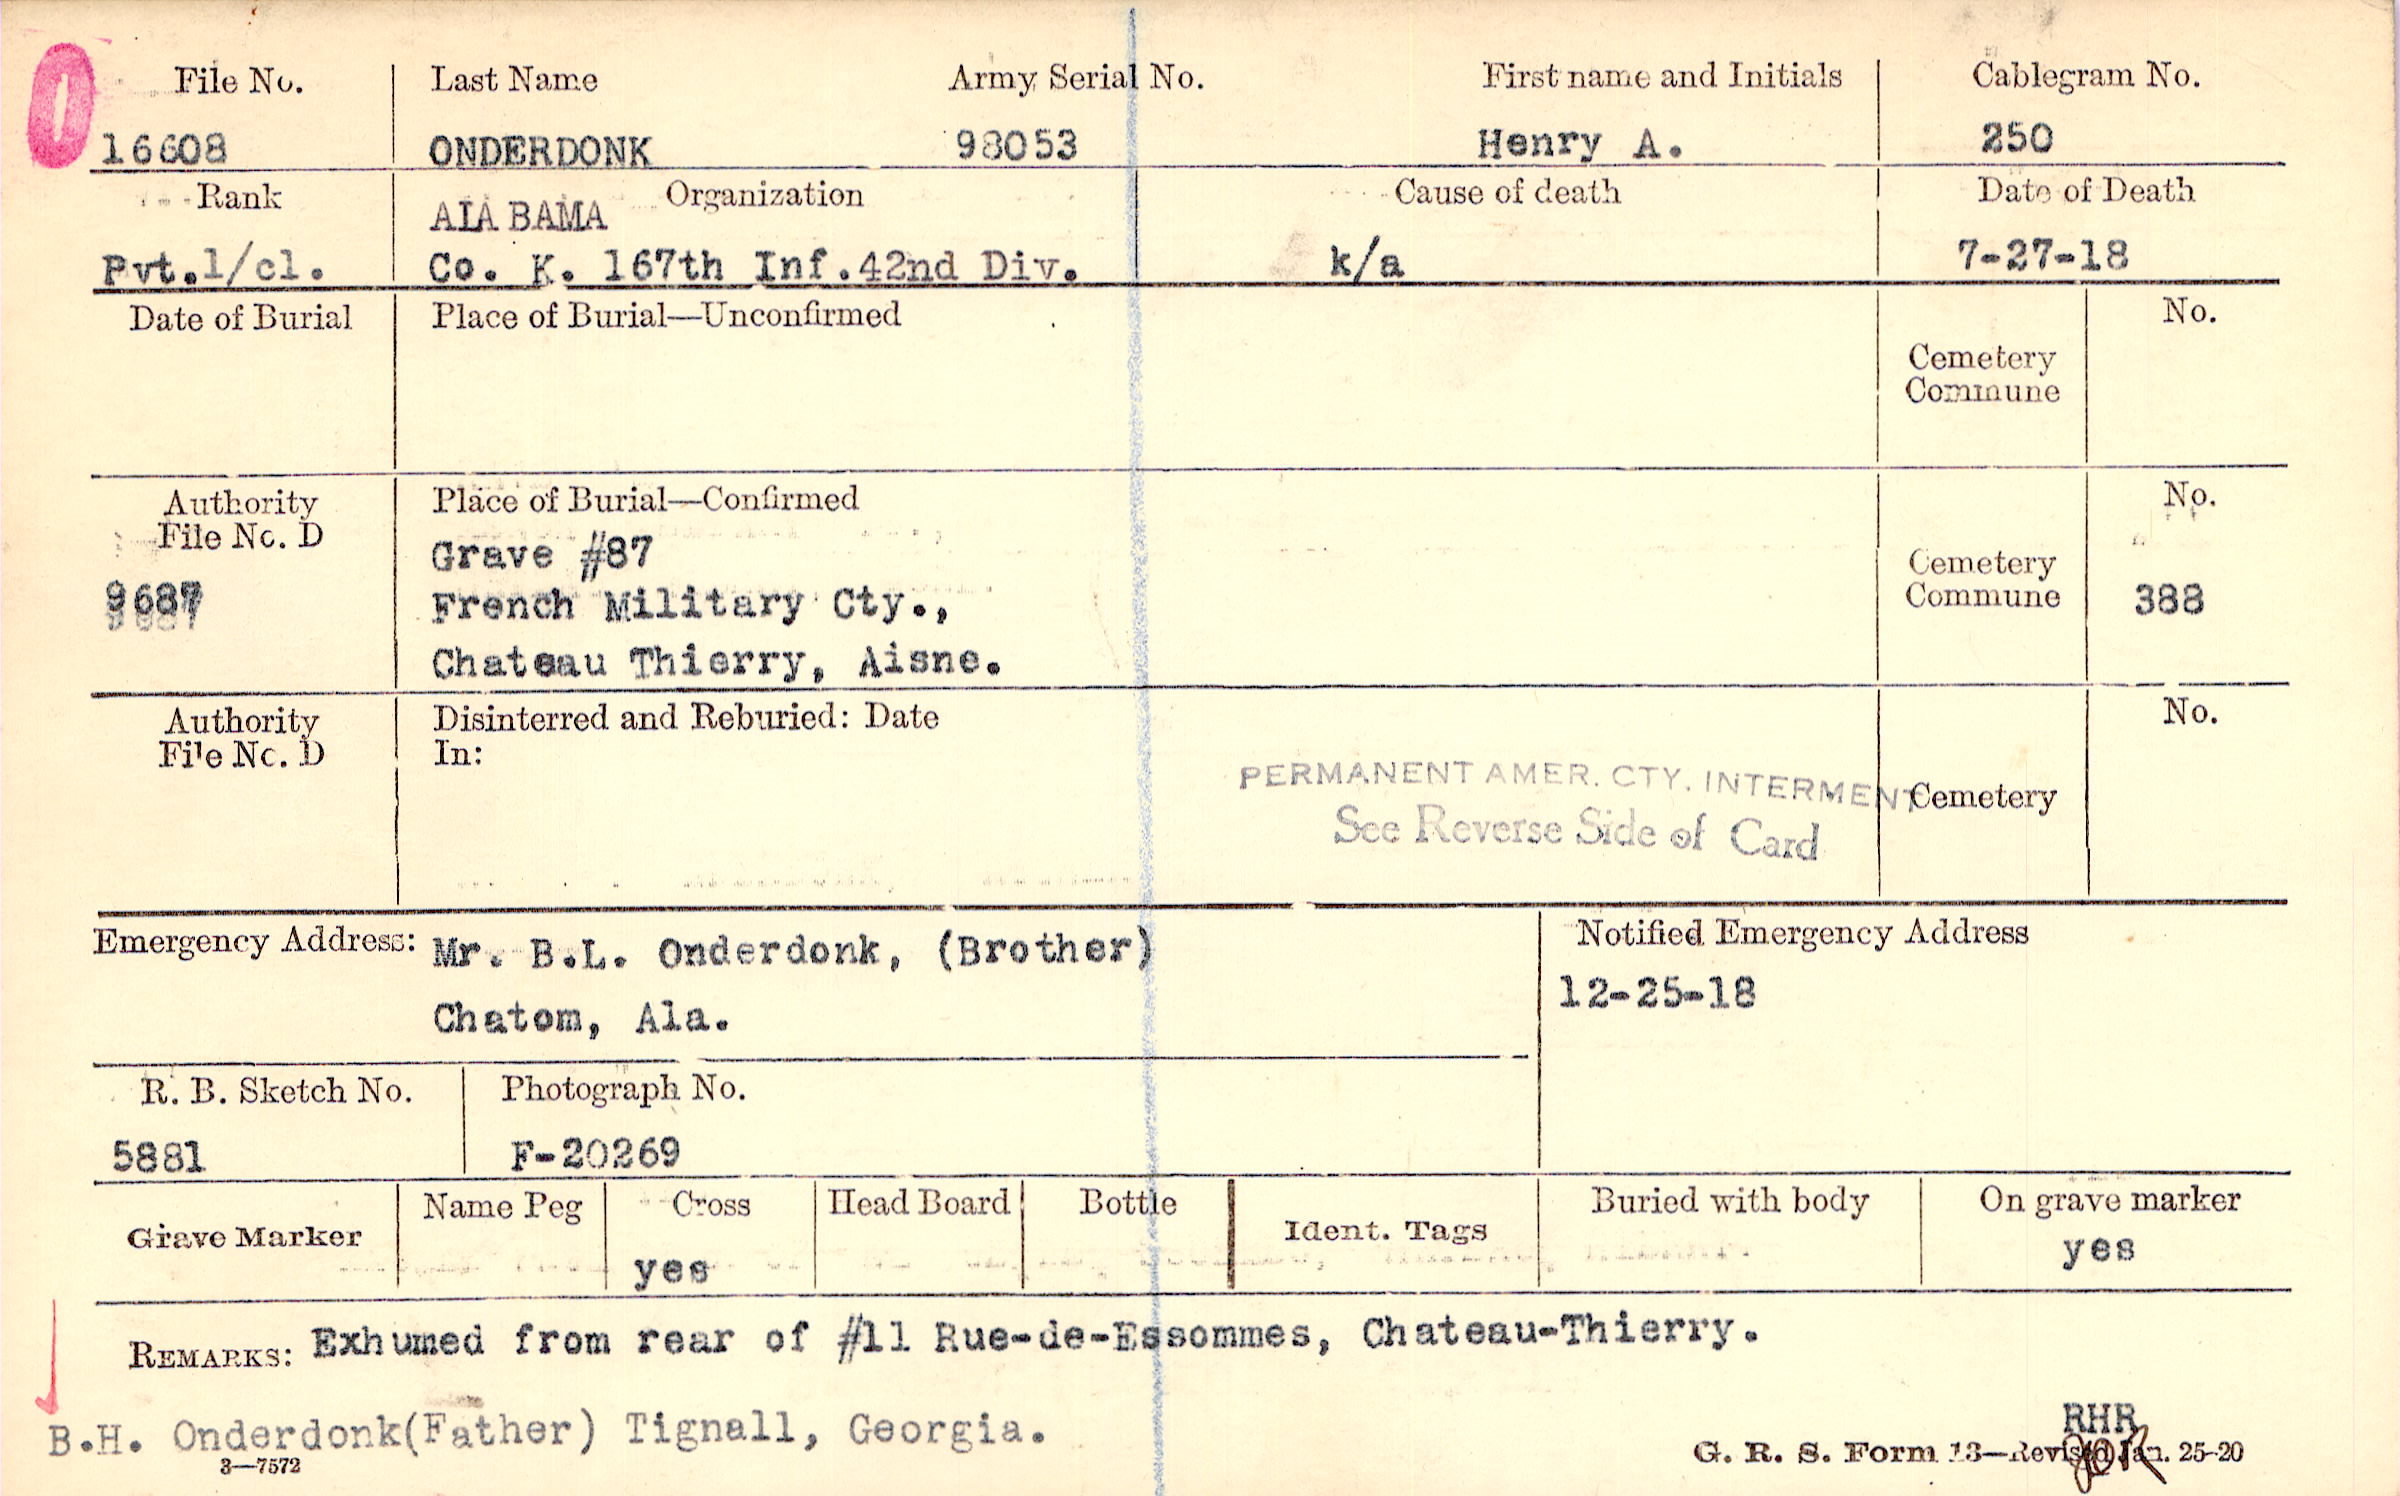 File No. Last Name Army Serial No. First name and Initials Cablegram No.
16608 ONDERDONK 98053 Henry A. 250
Rank Organization Cause of death Date of Death
ALABAMA
Pvt.1/cl. Co. K. 167th Inf.42nd Div. k/a 7-27-18
Date of Burial Place of Burial—Unconfirmed No.
Cemetery
Commune
Authority Place of Burial—Confirmed No.
File No. D
Grave #87
Cemetery
9687 French Military Cty., Commune 388
Chateau Thierry, Aisne.
Authority Disinterred and Reburied: Date No.
File No. D In:
PERMANENT AMER. CTY. INTERMENT Cemetery
See Reverse Side of Card
Emergency Address: Mr. B.L. Onderdonk, (Brother) Notified Emergency Address
Chatom, Ala. 12-25-18
R. B. Sketch No. Photograph No.
5881 F-20269
Grave Marker Name Peg Cross Head Board Bottle Ident. Tags Buried with body On grave marker
yes yes
REMARKS: Exhumed from rear of #11 Rue-de-Essommes, Chateau-Thierry.
B.H. Onderdonk(Father) Tignall, Georgia. RHR
3—7572 G. R. S. Form 13—Revised Jan. 25-20